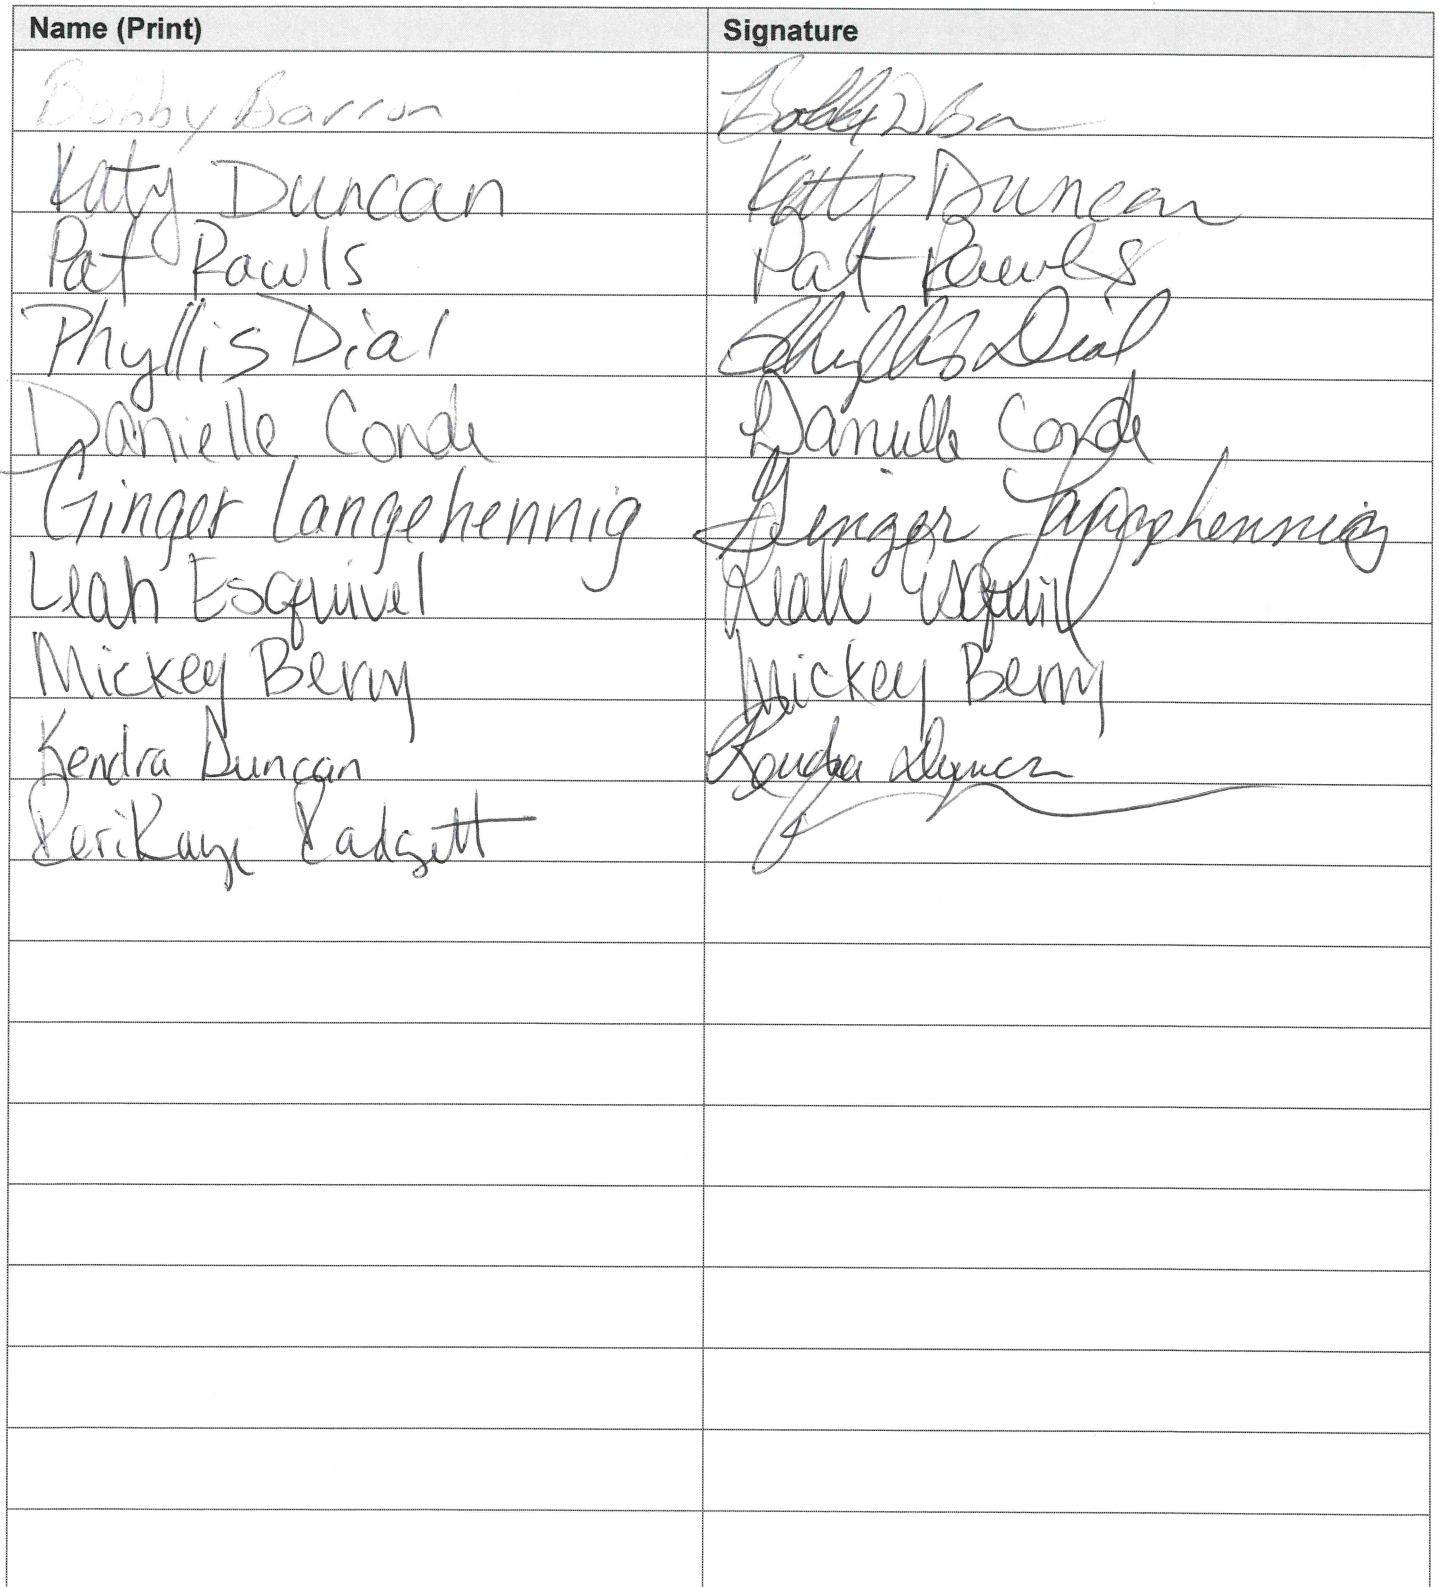 Name (Print) Signature
Bobby Barron Bobby D Ba
Katy Duncan Katy Duncan
Pat Rawls Pat Rawls
Phyllis Dial Phyllis Dial
Danielle Conde Danielle Conde
Ginger Langehennig Ginger Langehennig
Leah Esquivel Leah Esquivel
Mickey Berry Mickey Berry
Kendra Duncan Kendra Duncan
PeriKaye Padgett